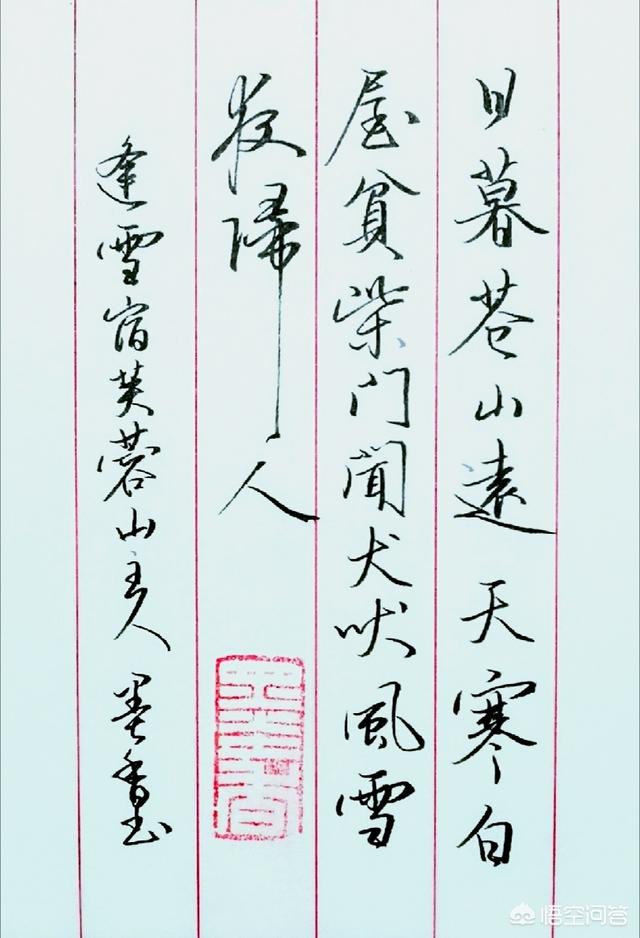 日暮苍山遠天寒白
屋貧柴门聞犬吠風雪
夜歸人
逢雪宿芙蓉山主人 墨香书
悟空问答